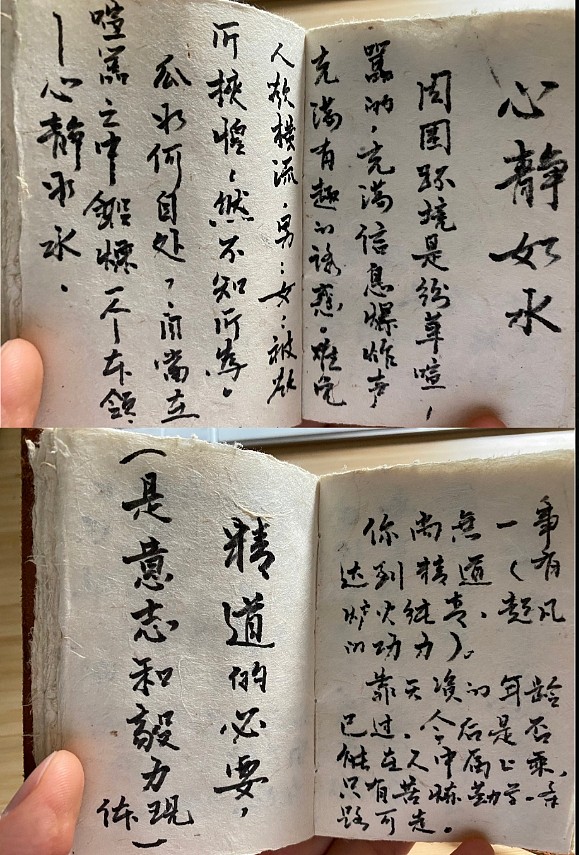 心静如水
周围环境是纷草喧，
嚣的，充满信息爆炸声，
充满有趣的诱惑。难免
人欲横流，男：女：被欲
所挟惶，然不知所为。
如何自处，自当立
喧嚣之中锻炼一个本领
—心静如水．
精道的必要，
（是意志和毅力
体现）
你尚無一事有
达到精道（
炉火纯青、超凡
的功力）。
靠天资的年龄
已过，今后是否
能在人中属上乘，
只有苦炼勤学一条
路可走。